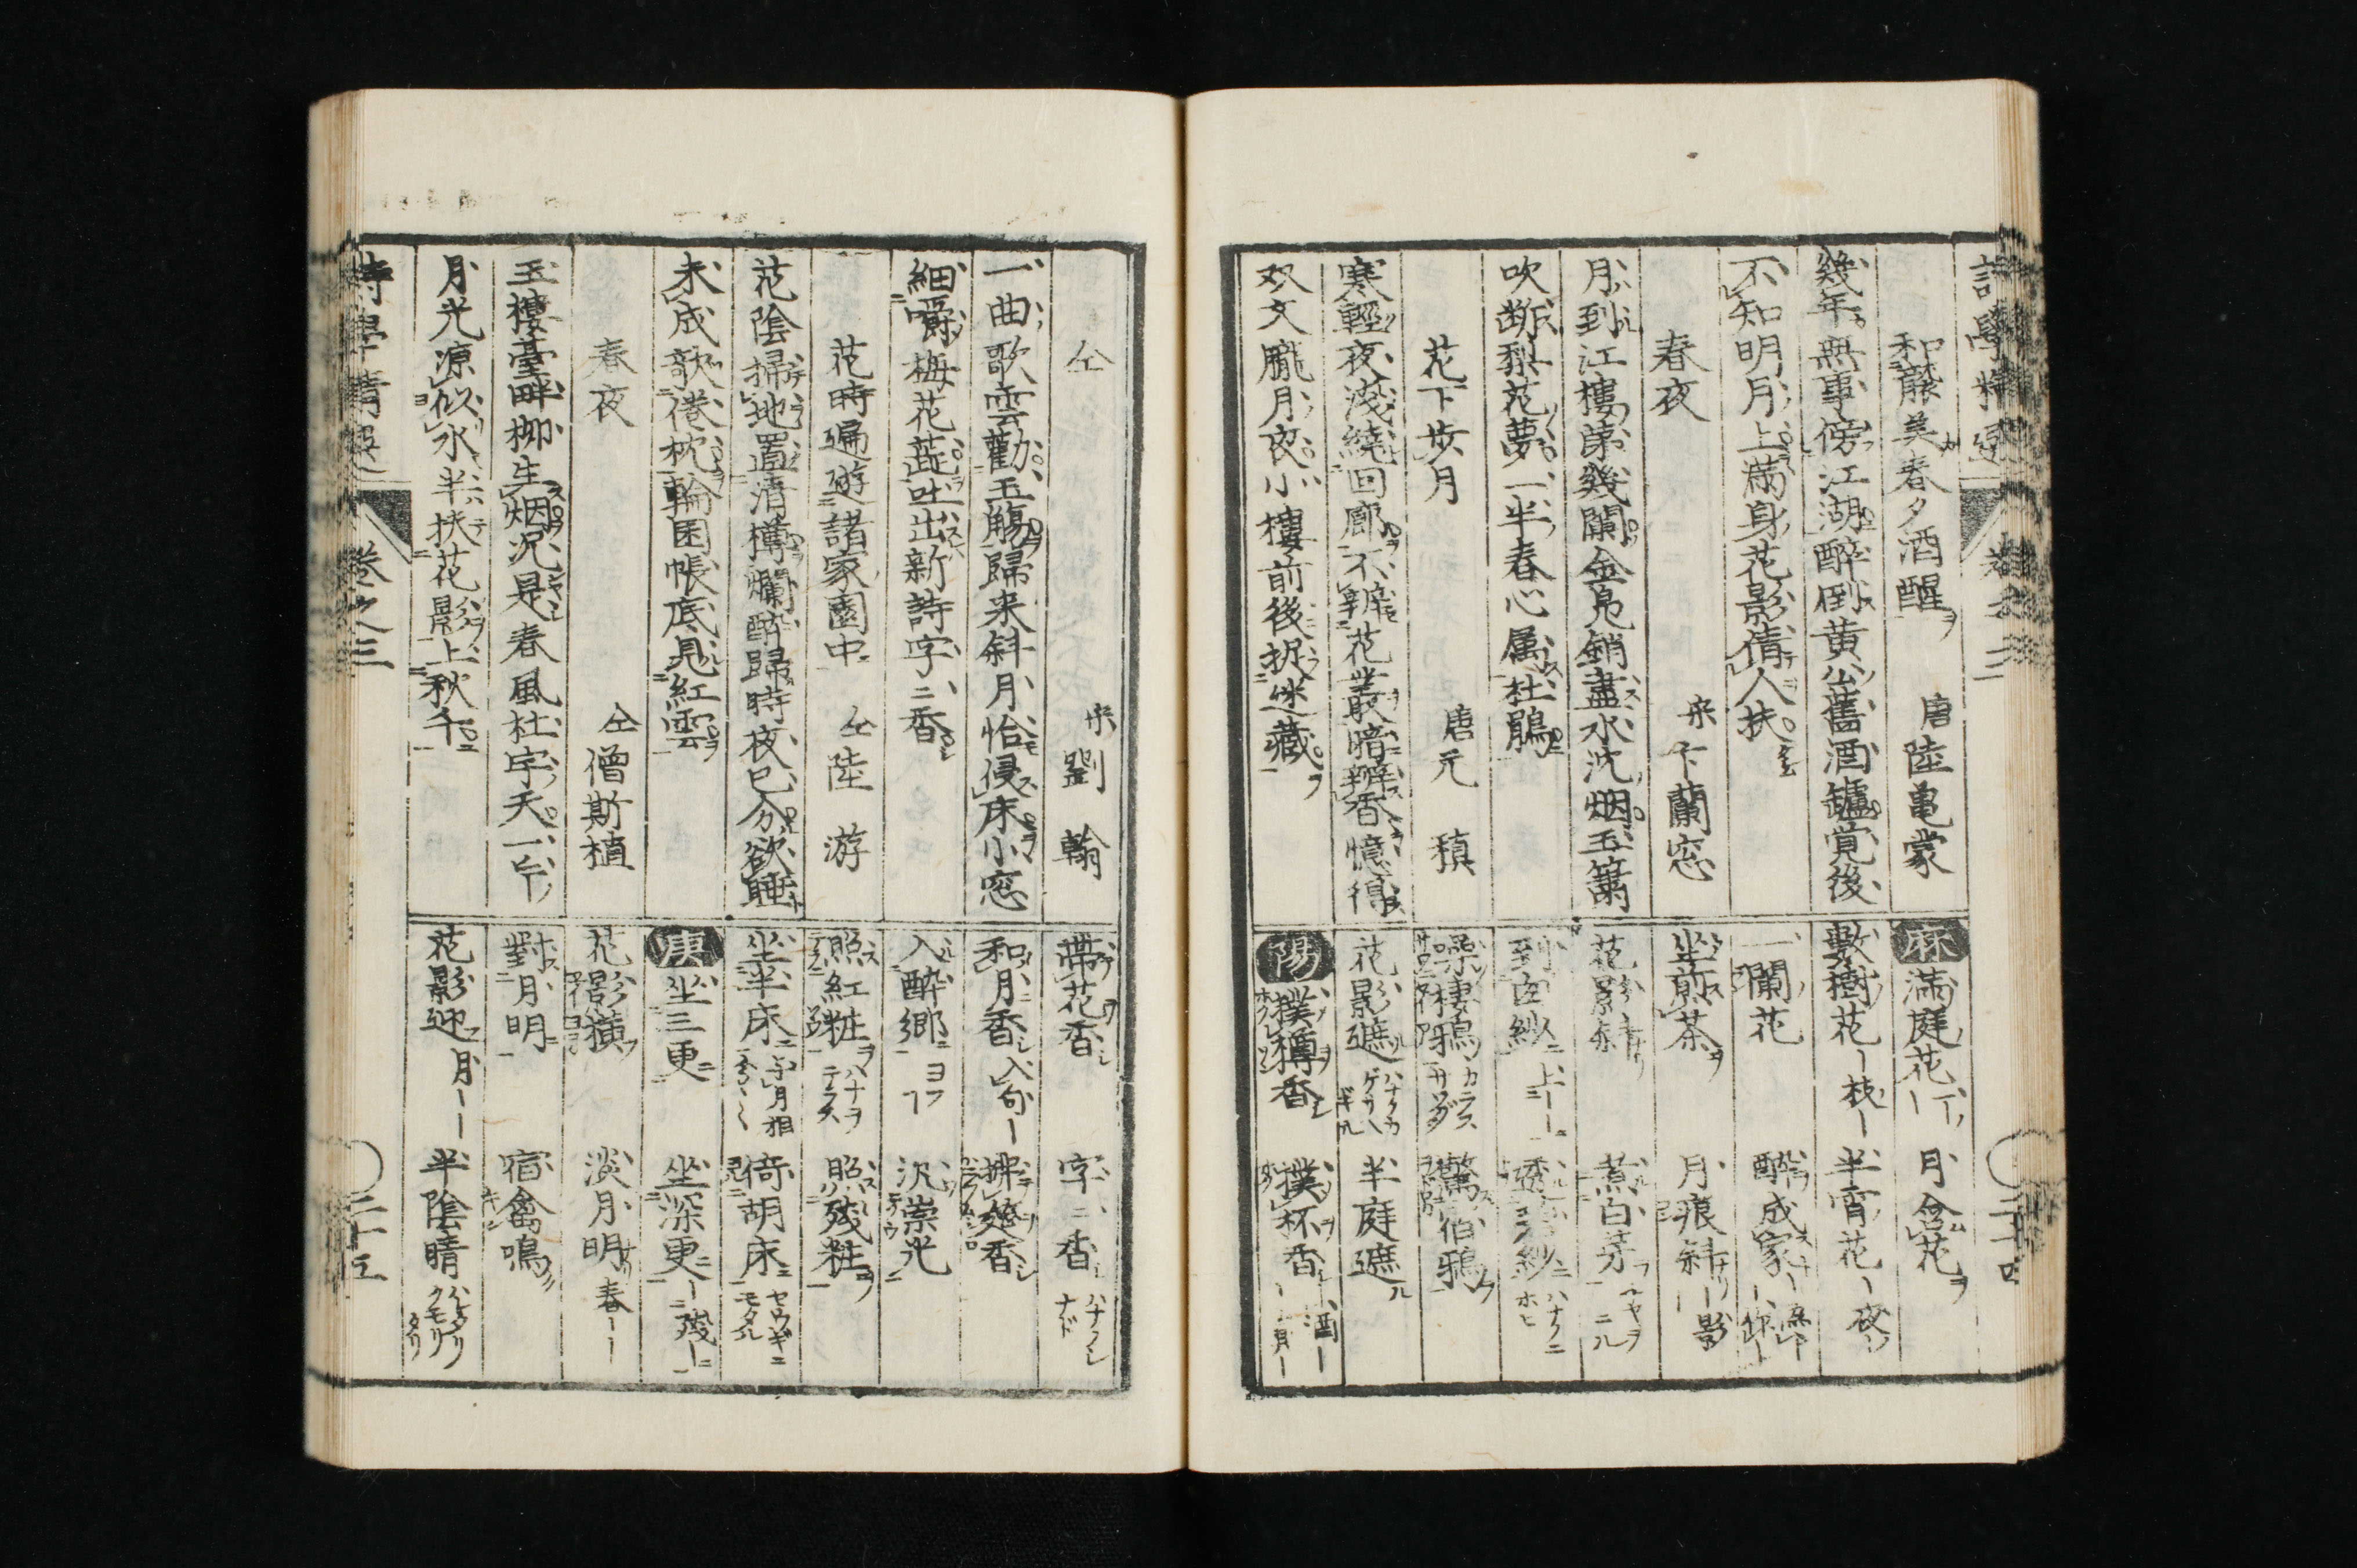 和襲美春夕酒醒 唐 陸亀蒙
幾年無事傍江湖醉倒黄公舊酒罏覚後
不知明月上滿身花影倩人扶
春夜 宋 卞蘭窓
月到江樓第幾闌金鳬銷盡水沈烟玉簫
吹断梨花夢一半春心属杜鵑
花下歩月 唐 元稹
寒輕夜淺繞回廊不辨花叢暗辨香憶得
双文朧月夜小樓前後捉迷藏
麻 滿庭花 月含花
數樹花 枝 半宵花 夜
一闌花 醉成家
坐煎茶 月痕斜 影
花影斜 煮白芽
到窓紗 上 透窓紗
噪棲鴉 驚宿鴉
花影遮 半庭遮
陽 撲樽香 撲杯香 酒 月
仝 宋 劉翰
一曲歌雲勸玉觴歸来斜月恰侵床小窓
細嚼梅花蕋吐出新詩字ニ香
花時遍遊諸家園中 仝 陸游
花陰掃地置清樽爛醉歸時夜已分欲睡
未成欹倦枕輪囷帳底見紅雲
春夜 仝 僧斯植
玉樓臺畔柳生烟况是春風杜宇天一
月光凉似水半扶花影上秋千
詩學精選 卷之三
帯花香 字ニ香
和月香 入句 拂筵香
入醉郷 沉崇光
照紅粧 照殘粧
坐半床 月 倚胡床
庚 坐三更 坐深更 殘
花影横 淡月明 春
對月明 宿禽鳴
花影迎 月 半陰晴
二十五